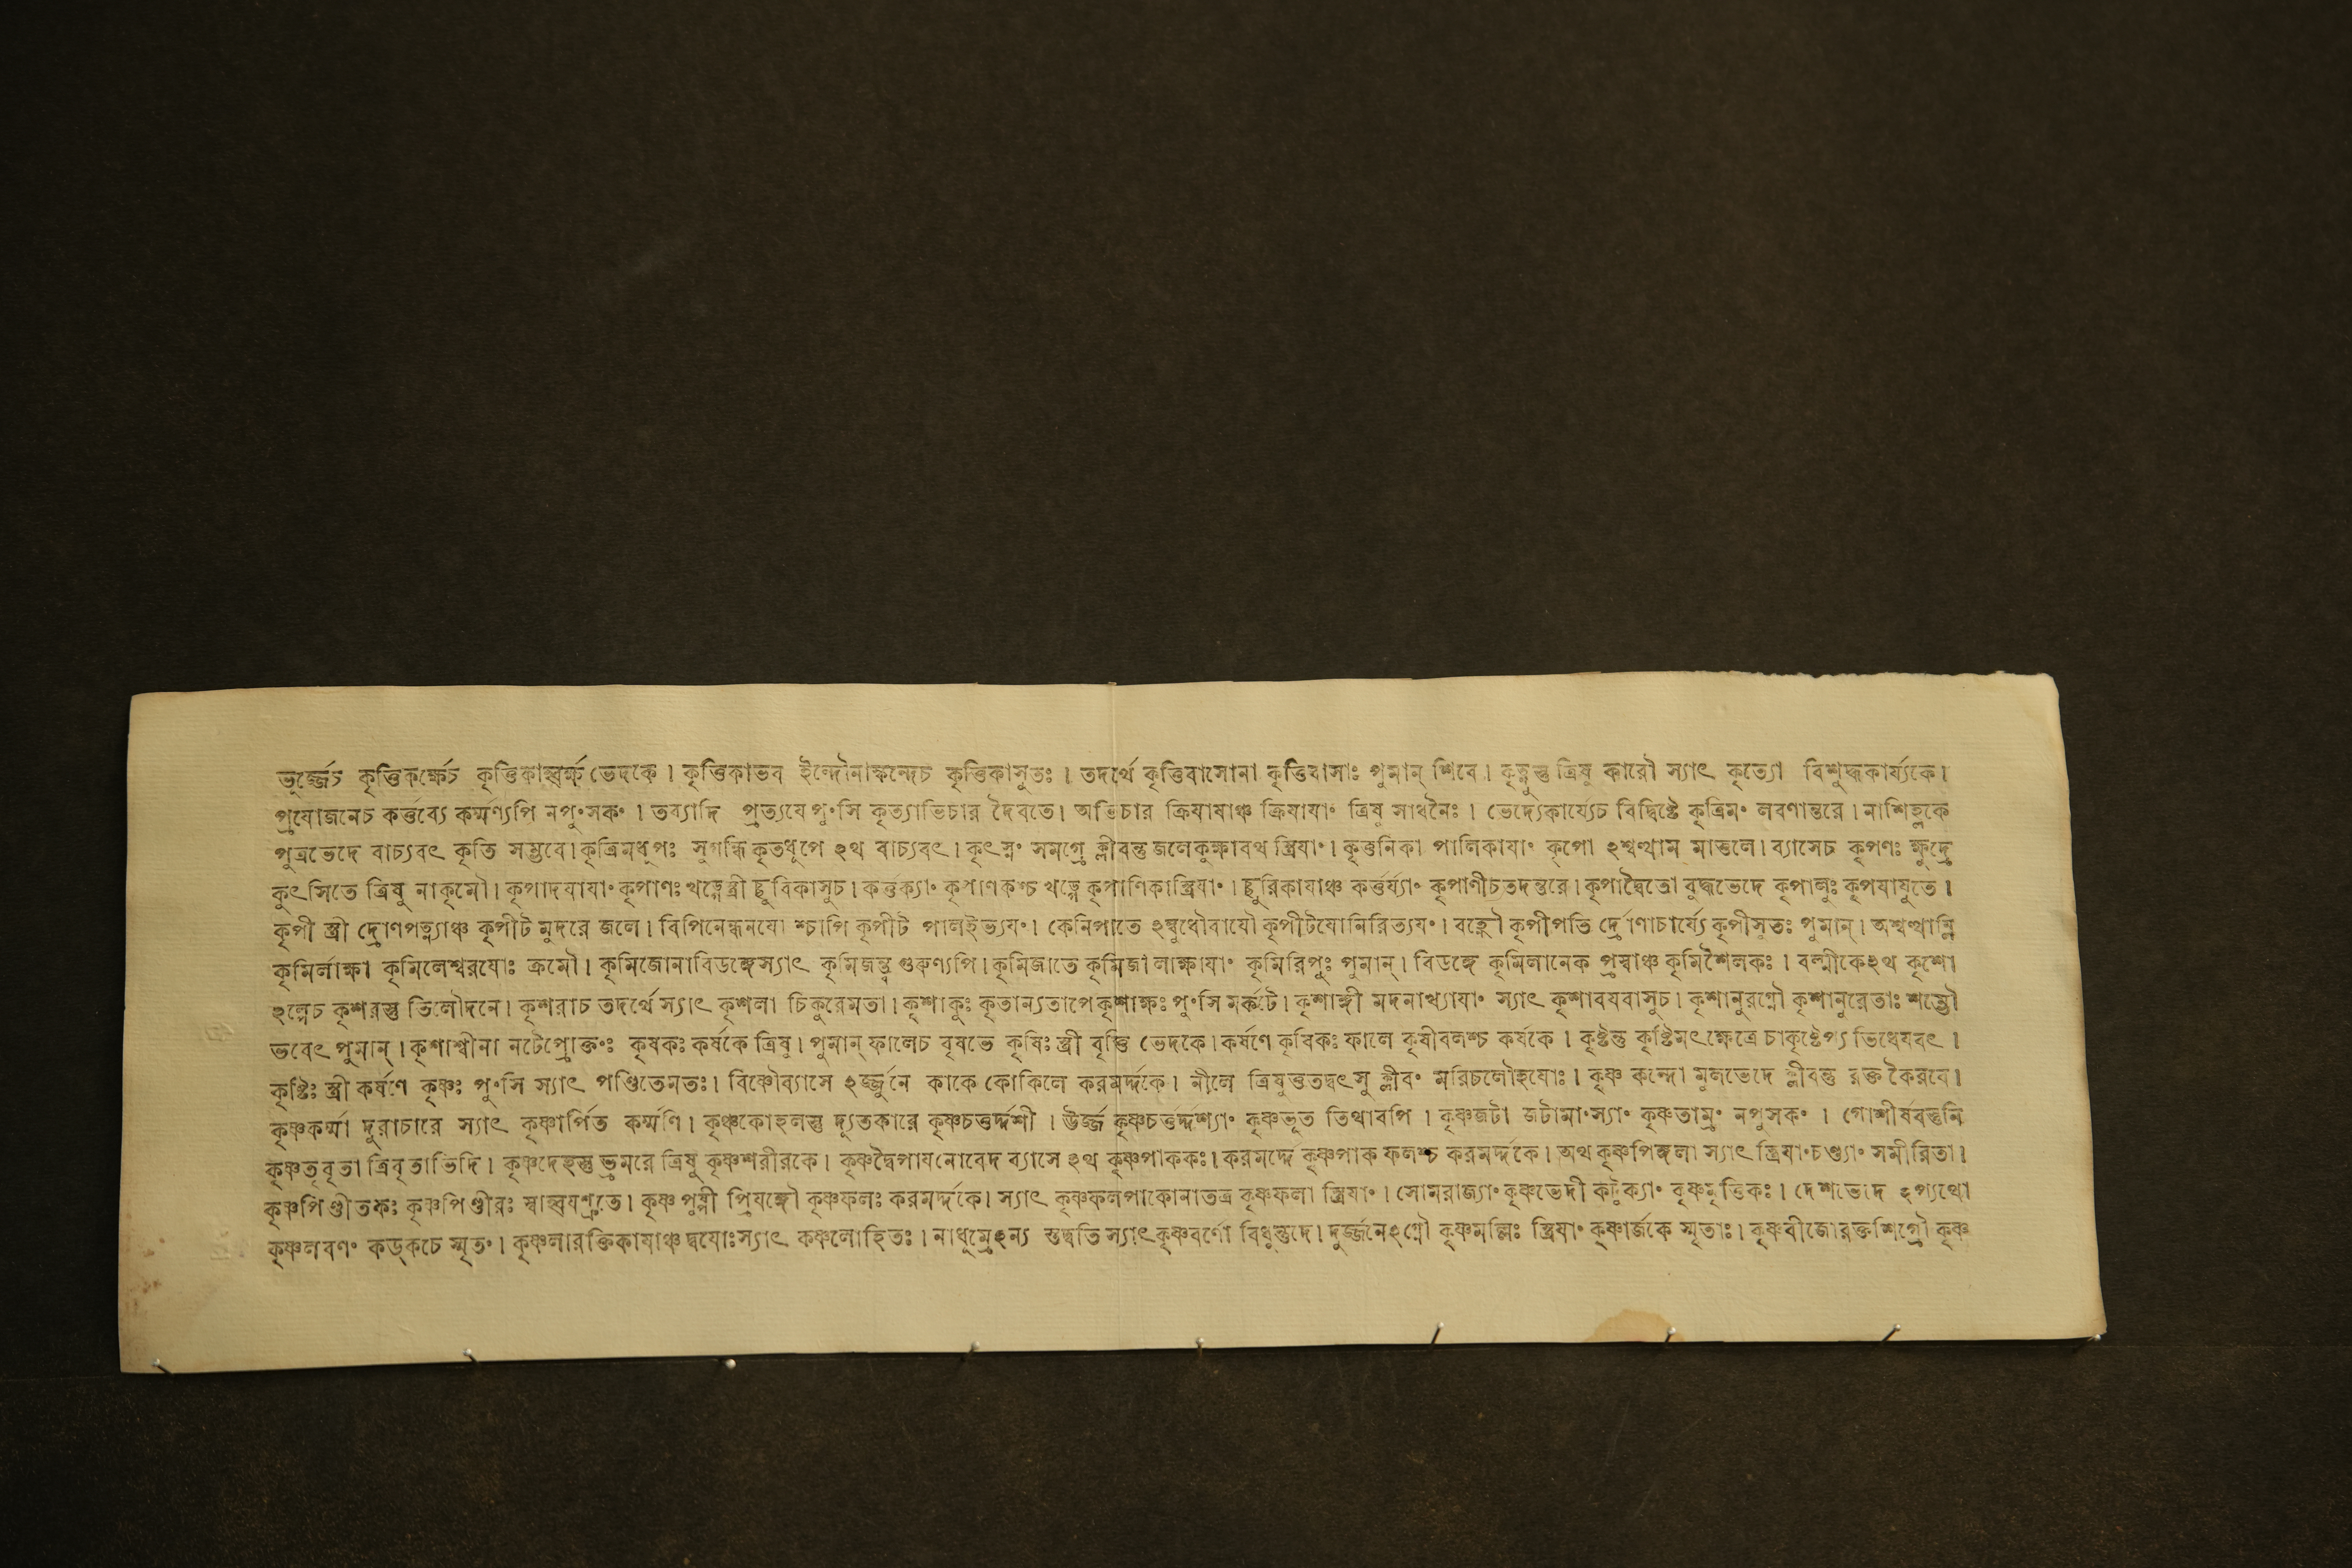 ভুর্জ্জেচ কৃত্তিকর্ক্ষেচ কৃত্তিকাস্ত্বর্ক্ষ ভেদকে। কৃত্তিকাভব ইন্দৌনাক্ষন্দেচ কৃত্তিকাসুতঃ। তদর্থে কৃত্তিবাসোনা কৃত্তিবাসাঃ পুমান্ শিবে। কৃত্নুস্তু ত্রিষু কারৌ স্যাৎ কৃত্যো বিশুদ্ধকার্য্যকে।
প্রযোজনেচ কর্ত্তব্যে কর্ম্মণ্যপি নপুং সকং। তব্যাদি প্রত্যযে পুংসি কৃত্যাভিচার দৈবতে। অভিচার ক্রিযাযাঞ্চ ক্রিযাযাং ত্রিষু সাধনৈঃ। ভেদ্যেকার্য্যেচ বিদ্বিষ্টে কৃত্রিমং লবণান্তরে। নাশিহ্লকে
পুত্রভেদে বাচ্যবৎ কৃতি সম্ভবে। কৃত্রিমধুপঃ সুগন্ধি কৃতধুপে ঽথ বাচ্যবৎ। কৃৎস্নং সমগ্রে ক্লীবন্তু জলেকুক্ষাবথ স্ত্রিযাং। কৃন্তনিকা পালিকাযাং কৃপো ঽশ্বত্থাম মাতুলে। ব্যাসেচ কৃপণঃ ক্ষুদ্রে
কুৎসিতে ত্রিষু নাকৃমৌ। কৃপাদযাযাং কৃপাণঃ খড্গেস্ত্রী ছুরিকাসুচ। কর্ত্তক্যাং কৃপাণকশ্চ খড্গে কৃপাণিকাস্ত্রিযাং। ছুরিকাযাঞ্চ কর্ত্তর্য্যাং কৃপাণীচতদন্তরে। কৃপাদ্বৈতো বুদ্ধভেদে কৃপালুঃ কৃপযাযুতে।
কৃপী স্ত্রী দ্রোণপত্ন্যাঞ্চ কৃপীট মুদরে জলে। বিপিনেন্ধনযো শ্চাপি কৃপীট পালইভ্যযং। কেনিপাতে ঽম্বুধৌবাযৌ কৃপীটযোনিরিত্যযং। বহ্নৌ কৃপীপতি র্দ্রোণাচার্য্যে কৃপীসুতঃ পুমান্। অশ্বত্থাম্নি
কৃমির্লাক্ষা কৃমিলেশ্বরযোঃ ক্রমৌ। কৃমিজোনাবিডঙ্গেস্যাৎ কৃমিজন্ত্ব গুরুণ্যপি। কৃমিজাতে কৃমিজা লাক্ষাযাং কৃমিরিপুঃ পুমান্। বিডঙ্গে কৃমিলানেক প্রস্বাঞ্চ কৃমিশৈলকঃ। বল্মীকেঽথ কৃশো
ঽল্পেচ কৃশরস্তু তিলৌদনে। কৃশরাচ তদর্থে স্যাৎ কৃশলা চিকুরেমতা। কৃশাকুঃ কৃতান্যতাপে কৃশাক্ষঃ পুংসি মর্কটে। কৃশাঙ্গী মদনাখ্যাযাং স্যাৎ কৃশাবযবাসুচ। কৃশানুরগ্নৌ কৃশানুরেতাঃ শম্ভৌ
ভবেৎ পুমান্। কৃশাশ্বীনা নটেপ্রোক্তংঃ কৃষকঃ কর্ষকে ত্রিষু। পুমান্ ফালেচ বৃষভে কৃষিঃ স্ত্রী বৃত্তি ভেদকে। কর্ষণে কৃষিকঃ ফালে কৃষীবলশ্চ কর্ষকে। কৃষ্টন্তু কৃষ্টিমৎক্ষেত্রে চাকৃষ্টেপ্য ভিধেযবৎ।
কৃষ্টিঃ স্ত্রী কর্ষণে কৃষ্ণঃ পুংসি স্যাৎ পণ্ডিতেমতঃ। বিষ্ণৌব্যাসে ঽর্জ্জুনে কাকে কোকিলে করমর্দ্দকে। নীলে ত্রিষুত্ততদ্বৎসু ক্লীবং মরিচলৌহযোঃ। কৃষ্ণ কন্দো মূলভেদে ক্লীবন্তু রক্ত কৈরবে।
কৃষ্ণকর্ম্মা দুরাচারে স্যাৎ কৃষ্ণার্পিত কর্ম্মণি। কৃষ্ণকোহলস্তু দ্যূতকারে কৃষ্ণচতুর্দ্দশী। উর্জ্জ কৃষ্ণচতুর্দ্দশ্যাং কৃষ্ণভূত তিথাবপি। কৃষ্ণজটা জটামাংস্যাং কৃষ্ণতাম্রং নপুসকং। গোশীর্ষবস্তুনি
কৃষ্ণতৃবৃতা ত্রিবৃতাভিদি। কৃষ্ণদেহস্তু ভ্রমরে ত্রিষু কৃষ্ণশরীরকে। কৃষ্ণদ্বৈপাযনোবেদ ব্যাসে ঽথ কৃষ্ণপাককঃ। করমর্দ্দে কৃষ্ণপাক ফলশ্চ করমর্দ্দকে। অথ কৃষ্ণপিঙ্গলা স্যাৎ স্ত্রিযাং চণ্ড্যাং সমীরিতা।
কৃষ্ণপিণ্ডীতকঃ কৃষ্ণপিণ্ডীরঃ স্বাহ্বযশ্রুতে। কৃষ্ণ পুষ্পী প্রিযঙ্গৌ কৃষ্ণফলঃ করমর্দ্দকে। স্যাৎ কৃষ্ণফলপাকোনাতত্র কৃষ্ণফলা স্ত্রিযাং। সোমরাজ্যাং কৃষ্ণভেদী কটুক্যাং কৃষ্ণমৃত্তিকঃ। দেশভেদে ঽপ্যথো
কৃষ্ণলবণং কড্কচে স্মৃতং। কৃষ্ণলারক্তিকাযাঞ্চ দ্বযোঃস্যাৎ কষ্ণলোহিতঃ। নাধূম্রেঽন্য স্তদ্বতি স্যাৎ কৃষ্ণবর্ণো বিধুন্তুদে। দুর্জ্জনেঽগ্নৌ কৃষ্ণমল্লিঃ স্ত্রিযাং কৃষ্ণার্জকে স্মৃতাঃ। কৃষ্ণবীজোরক্তশিগ্রৌ কৃষ্ণ